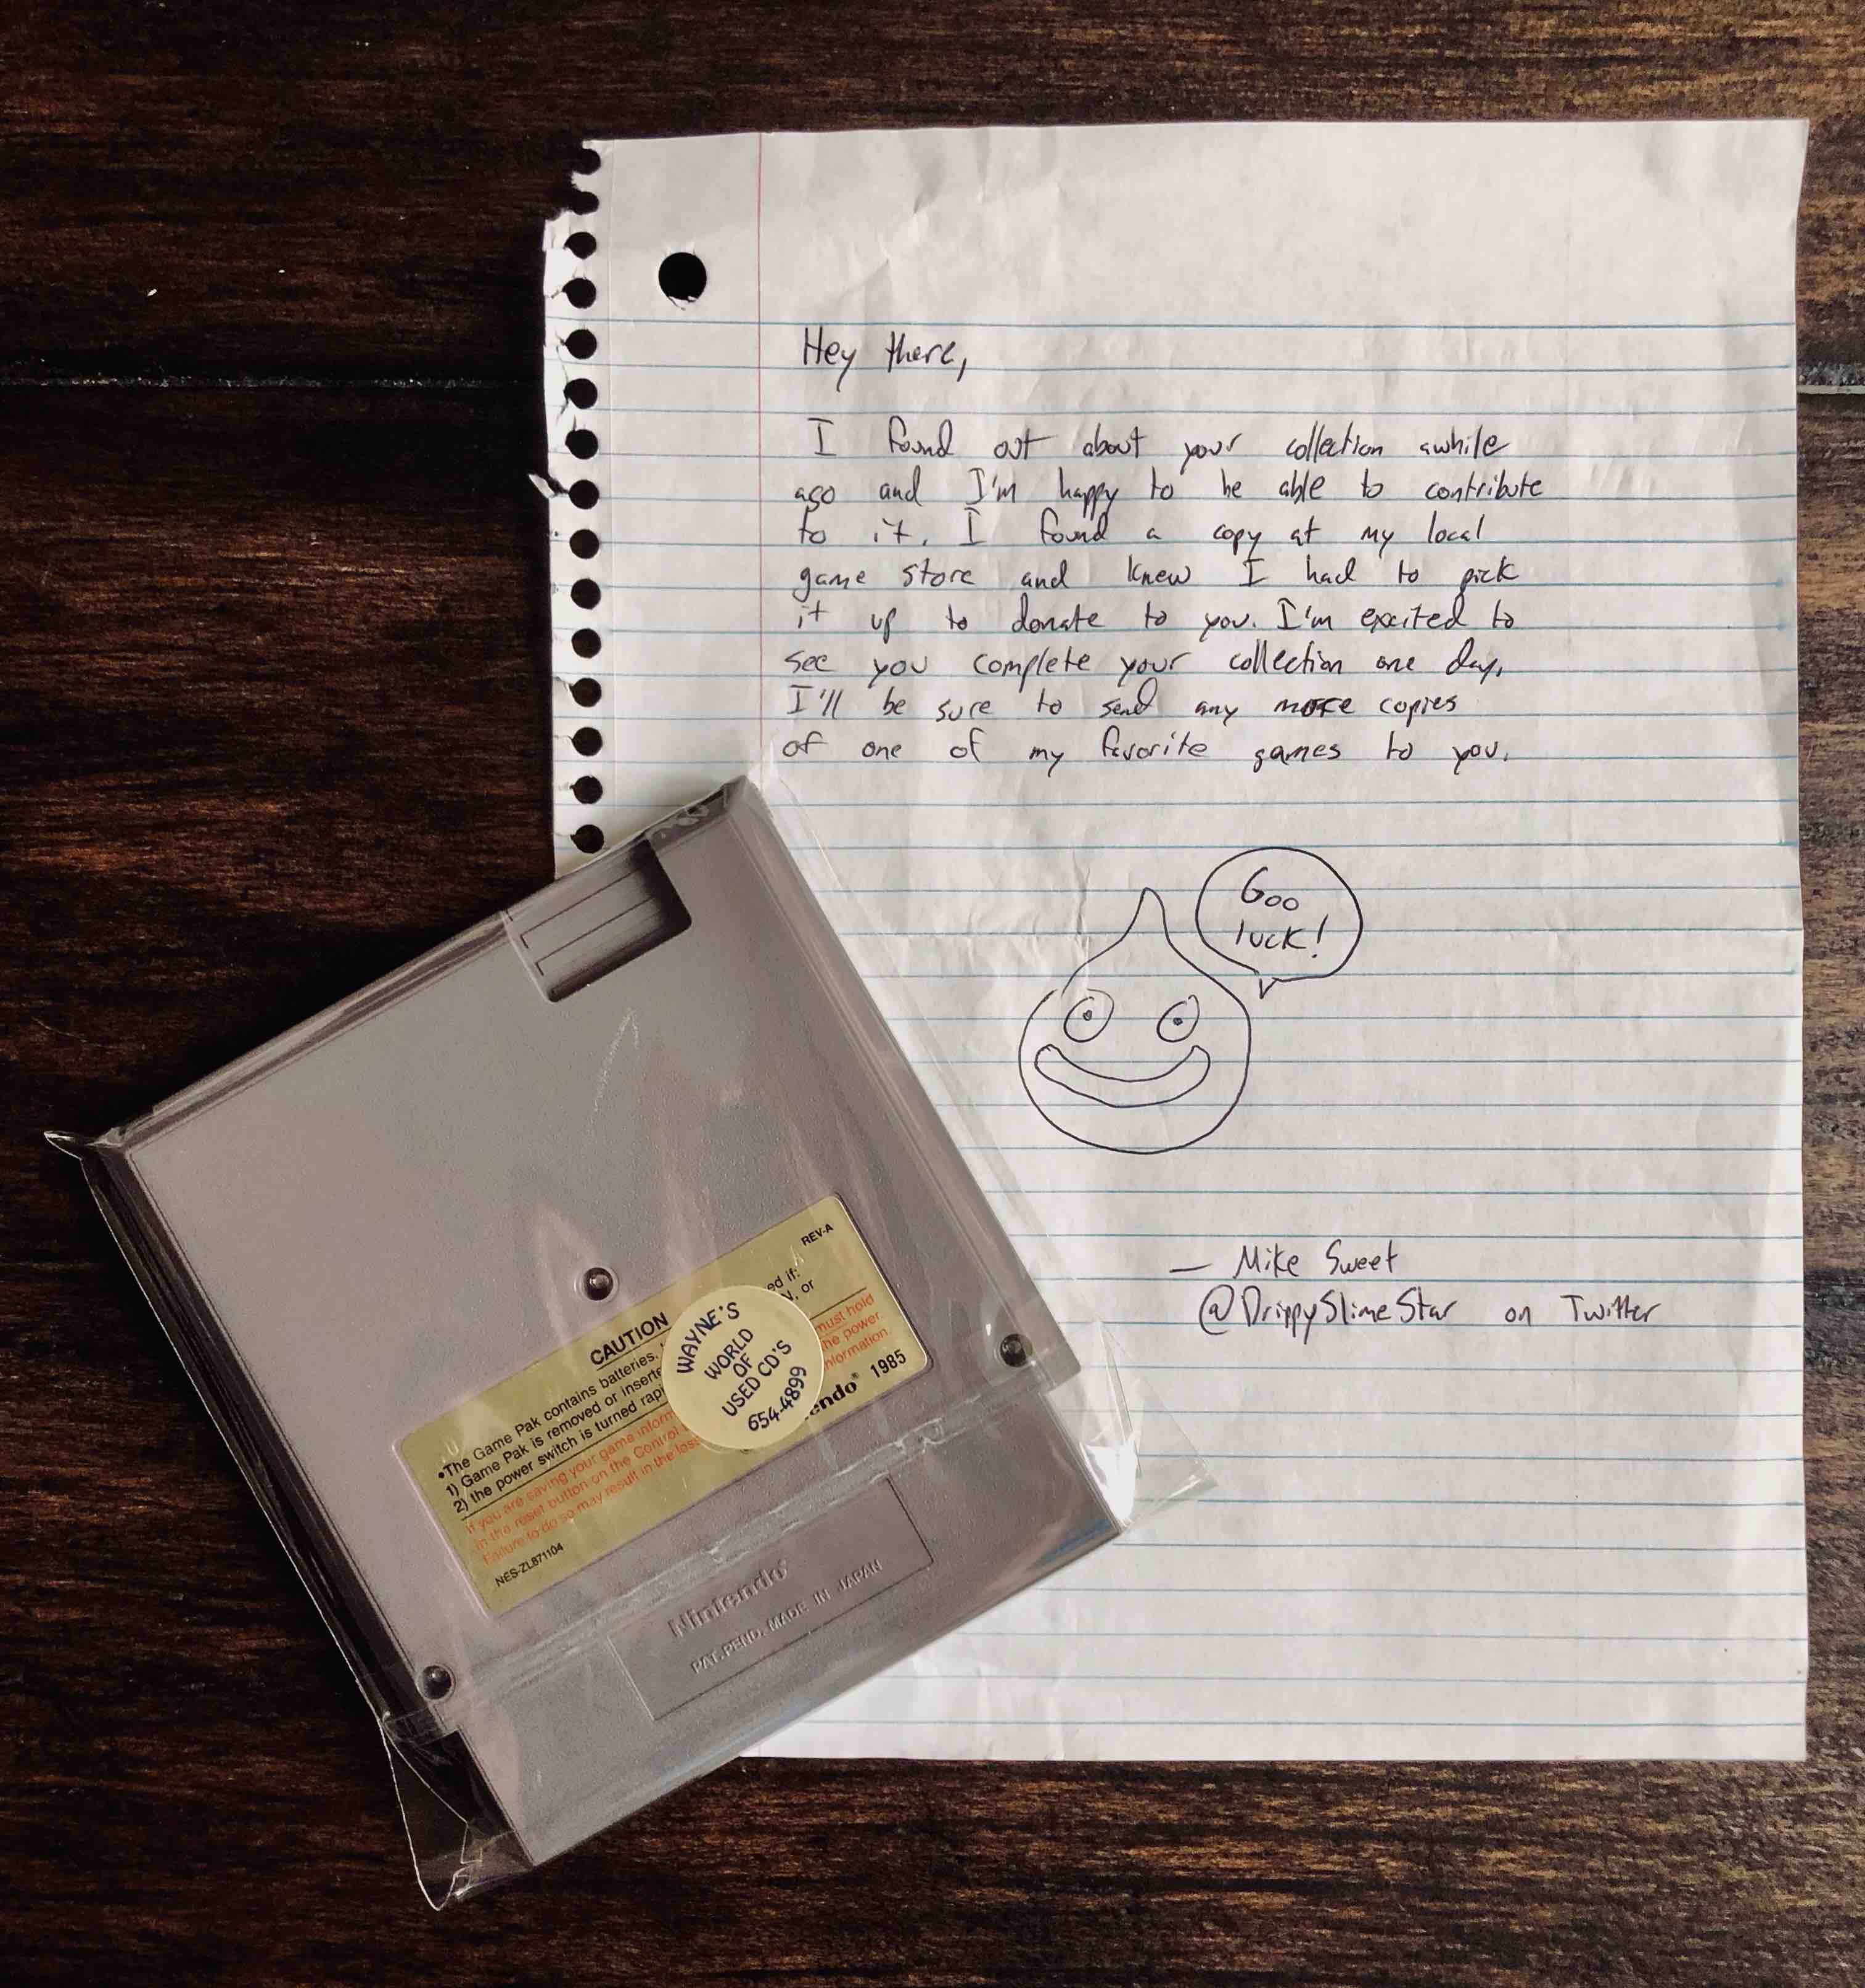 Hey there,
I found out about your collection awhile
ago and I'm happy to be able to contribute
to it. I found a copy at my local
game store and knew I had to pick
it up to donate to you. I'm excited to
see you complete your collection one day,
I'll be sure to send any more copies
of one of my favorite games to you.
Goo
luck!
— Mike Sweet
@DrippySlimeStar on Twitter
REV-A
CAUTION
•The Game Pak contains batteries.
ed if:
1) Game Pak is removed or inserte
V, or
2) the power switch is turned rapi
If you are saving your game inform
must hold
in the reset button on the Control
he power
Failure to do so may result in the loss
nformation.
NES-ZL871104
endo® 1985
WAYNE'S
WORLD
OF
USED CD'S
654-4899
Nintendo®
PAT. PEND. MADE IN JAPAN